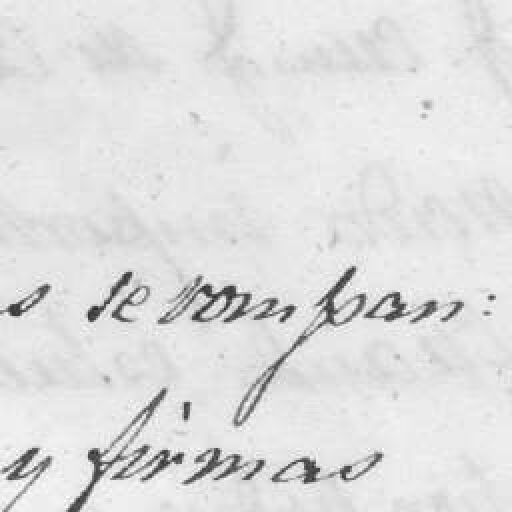 s se rompan:
y firmas